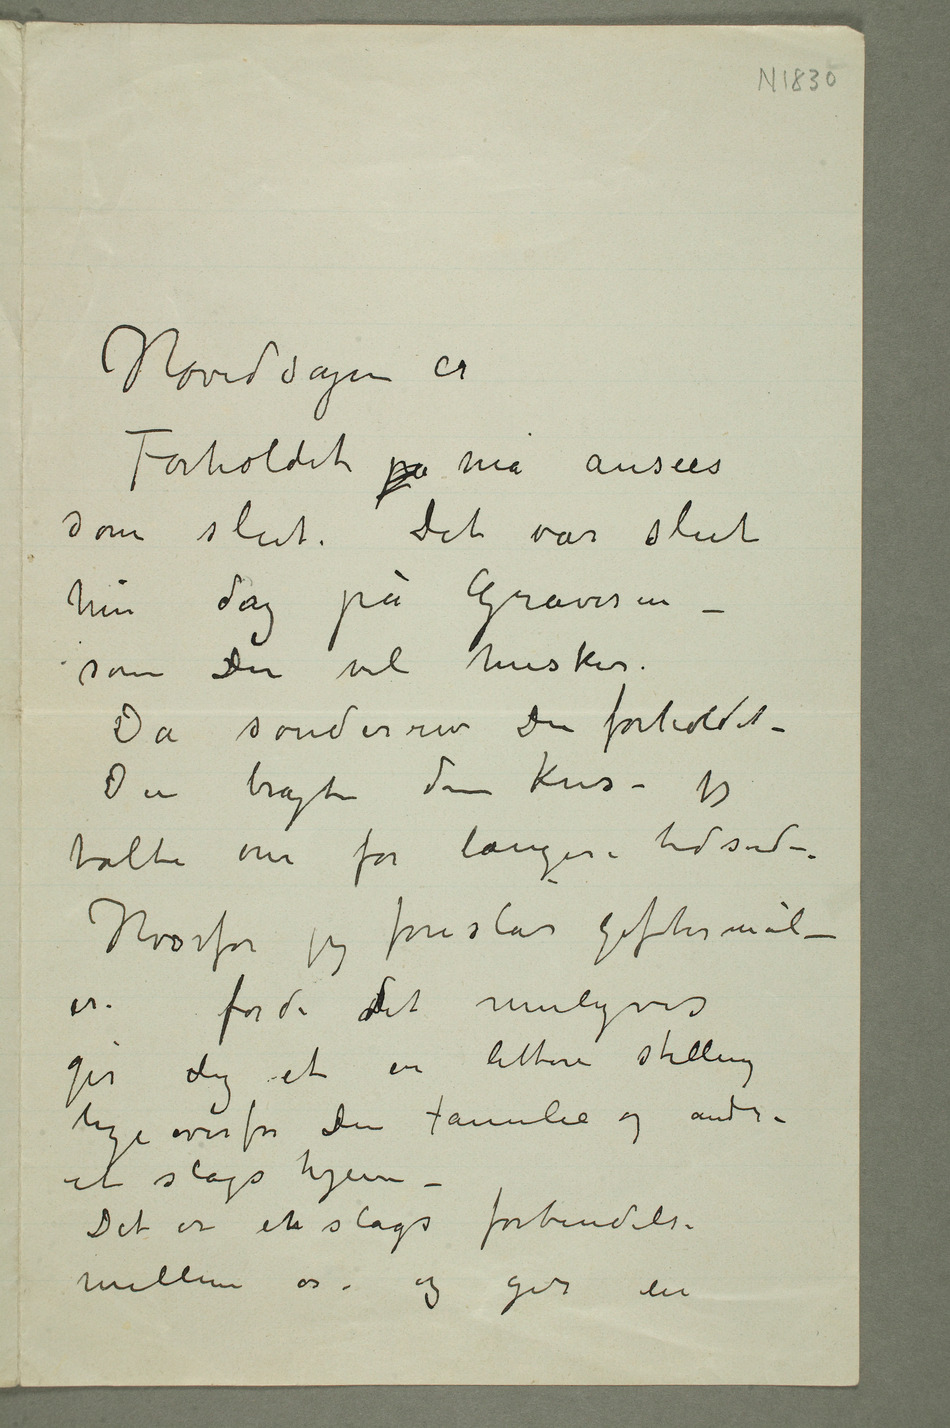 N1830
Hovedsagen er
Forholdet på må ansees
som slut. Det var slut
hin dag på Gravesen –
som Du vel husker.
Da sønderrev Du forholdet –
Du bragte den Kris – jeg
talte om for længere tid sid–.
Hvorfor jeg foreslår giftermål –
er. fordi det muligvis
gir dig et en lettere stilling
lige overfor Din Familie og andre
et slags hjem –
Det er en slags forbindelse
mellem os. og gir en